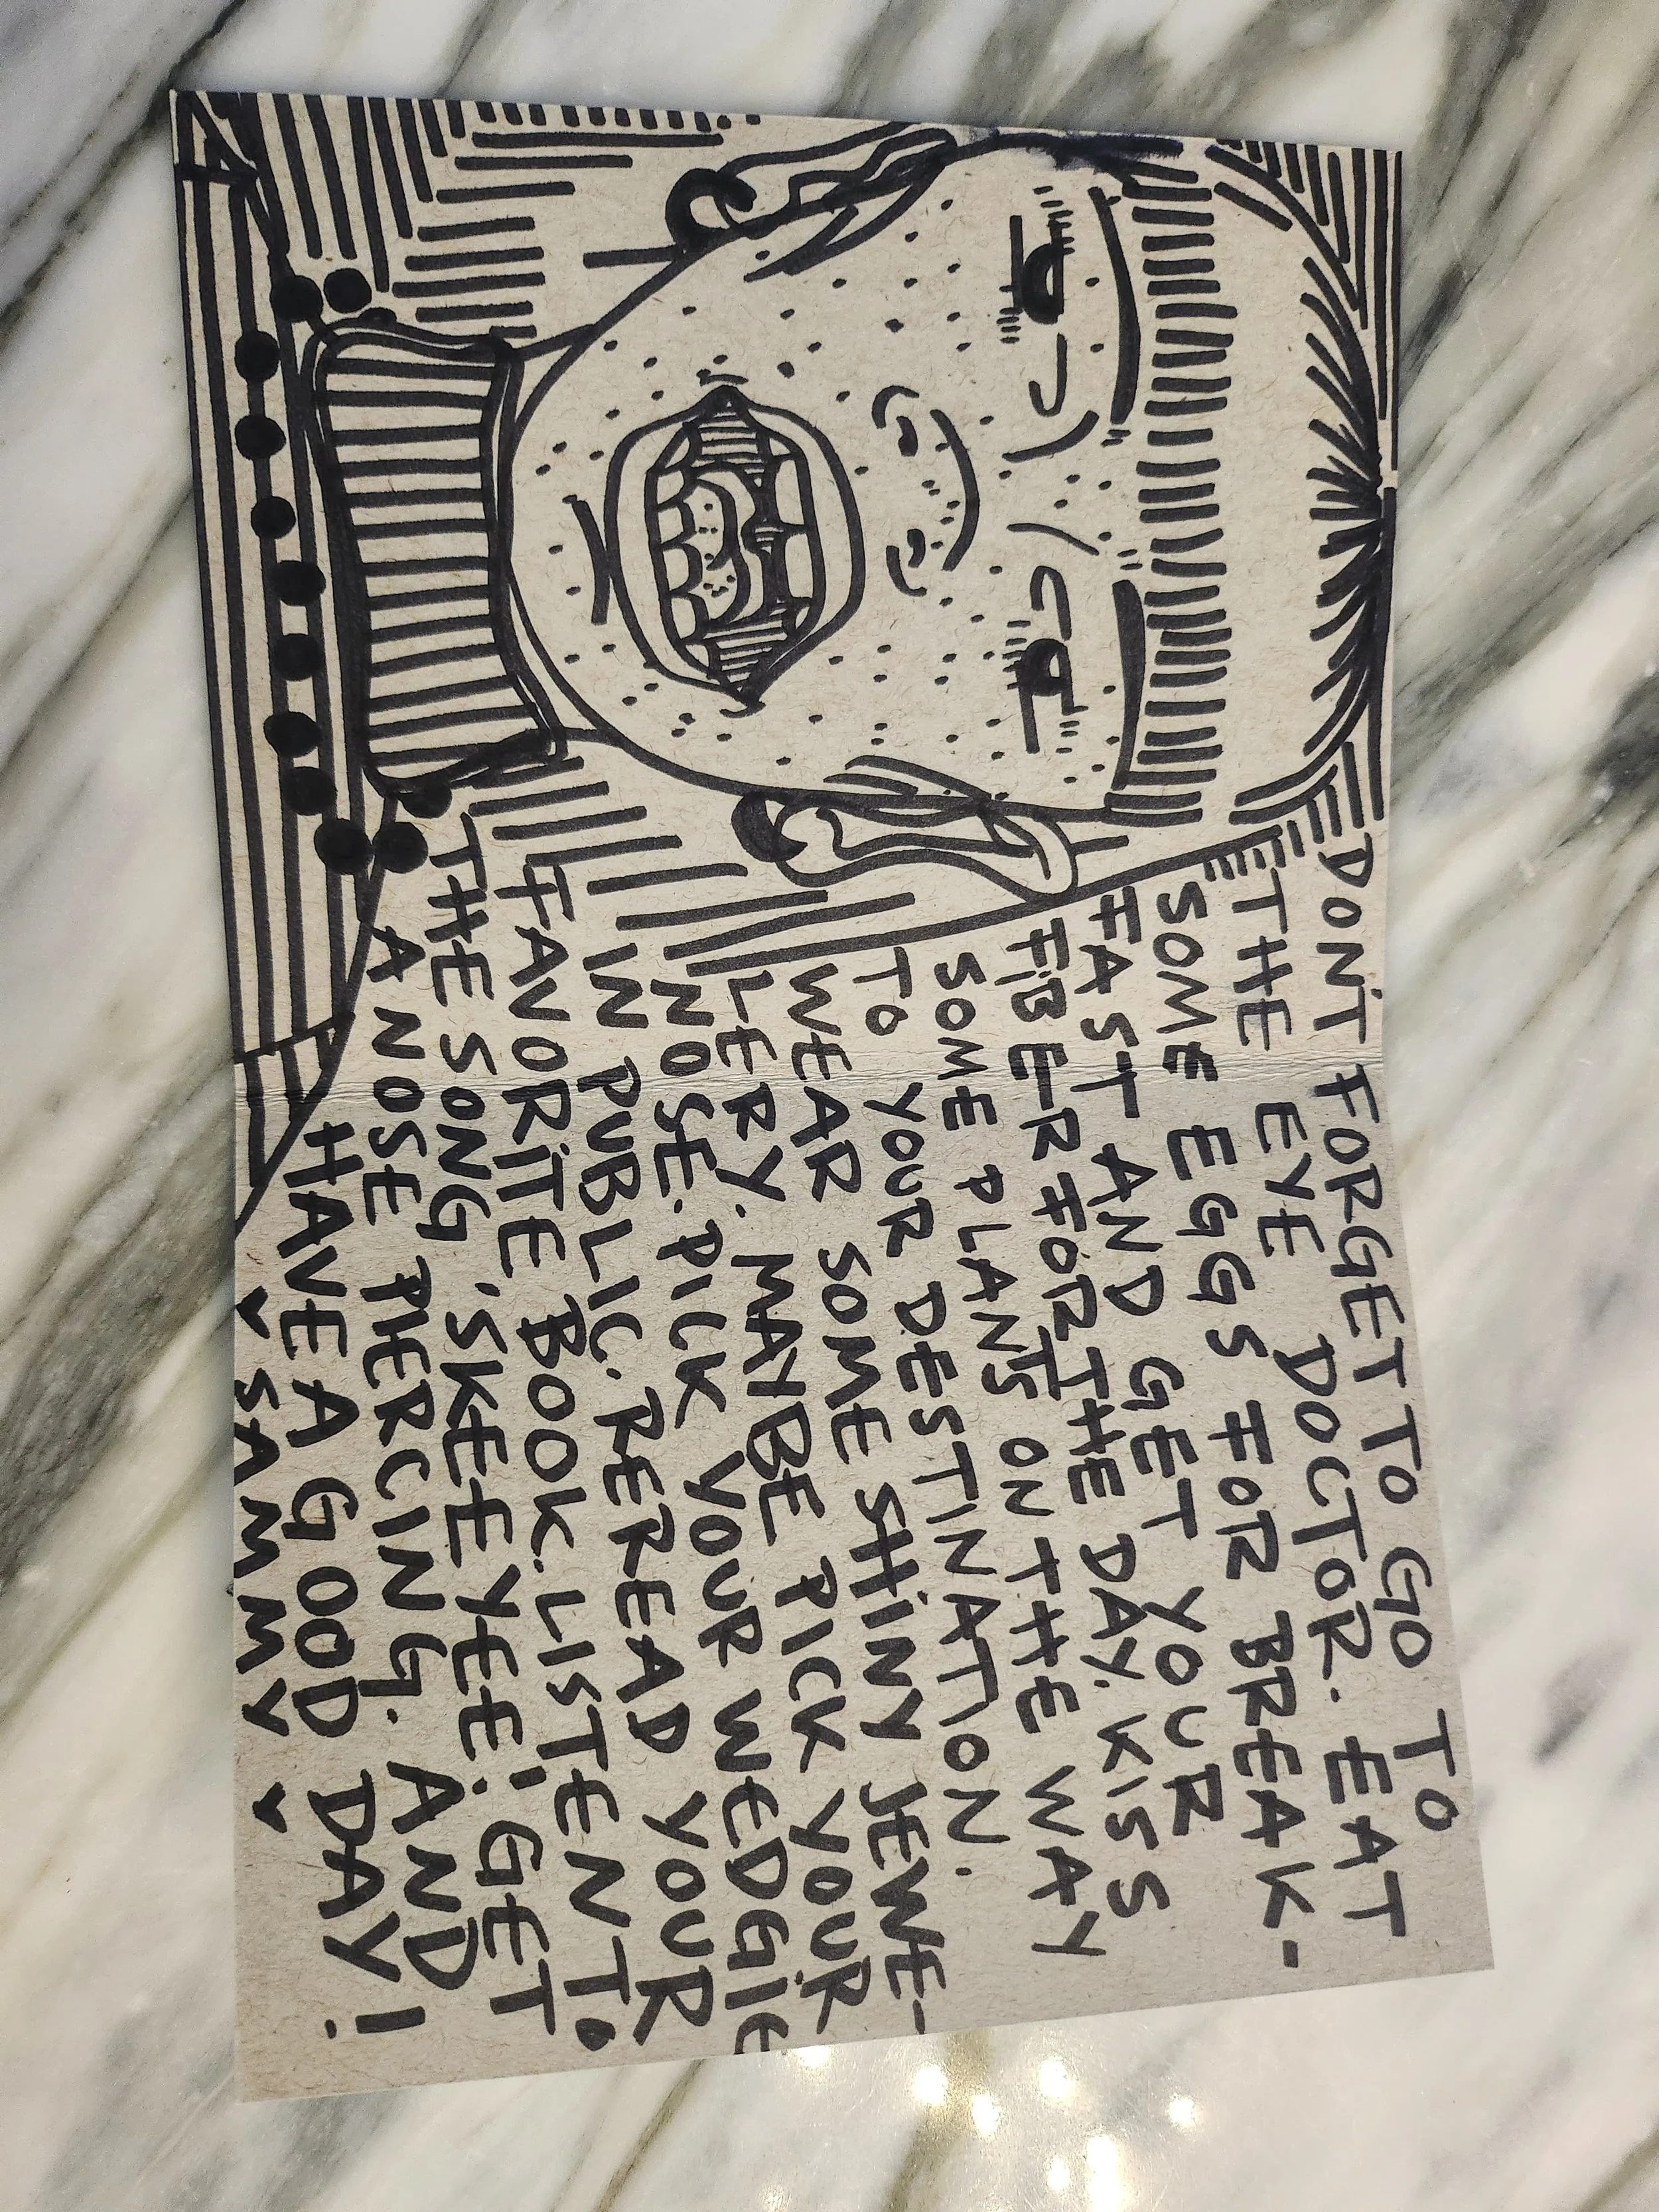 DON'T FORGET TO GO TO
THE EYE DOCTOR. EAT
SOME EGGS FOR BREAK-
FAST AND GET YOUR
FIBER FOR THE DAY. KISS
SOME PLANTS ON THE WAY
TO YOUR DESTINATION.
WEAR SOME SHINY JEWE-
LERY. MAYBE PICK YOUR
NOSE. PICK YOUR WEDGIE
IN PUBLIC. REREAD YOUR
FAVORITE BOOK. LISTEN TO
THE SONG 'SKEEYEE.' GET
A NOSE PIERCING. AND
HAVE A GOOD DAY!
SAMMY